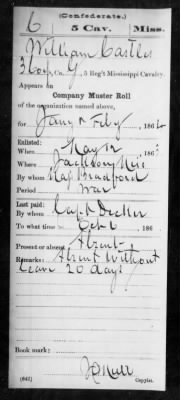 (Confederate.)
6 5 Cav. Miss.
William Castles
3 Corp, Co. G, 5 Reg't Mississippi Cavalry.
Appears on
Company Muster Roll
of the organization named above,
for Jany & Feby, 186
Enlisted:
When May 12, 186
Where Jackson Miss
By whom Cap. Bradford
Period War
Last paid:
By whom Capt Decker
To what time Oct 186
Present or absent Absent
Remarks: Absent Without
leave 20 days
Book mark:
(642) Copyist.